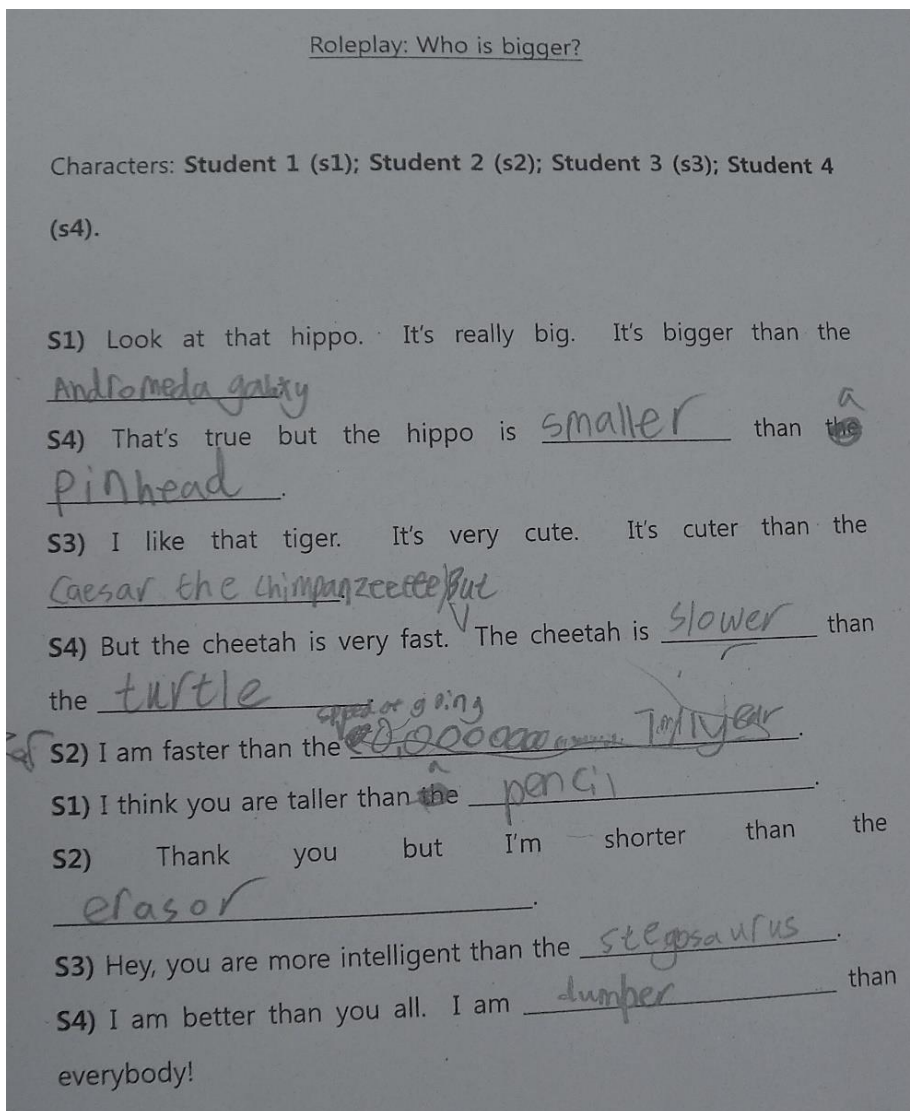 Roleplay: Who is bigger?
Characters: Student 1 (s1); Student 2 (s2); Student 3 (s3); Student 4
(s4).
S1) Look at that hippo. It's really big. It's bigger than the
Andromeda galaxy
a
S4) That's true but the hippo is smaller than the
pinhead.
S3) I like that tiger. It's very cute. It's cuter than the
Caesar the chimpanzeeeee But
S4) But the cheetah is very fast. The cheetah is slower than
the turtle
going
S2) I am faster than the 1m/1year.
a
S1) I think you are taller than the pencil.
S2) Thank you but I'm shorter than the
erasor.
S3) Hey, you are more intelligent than the stegosaurus.
S4) I am better than you all. I am dumber than
everybody!